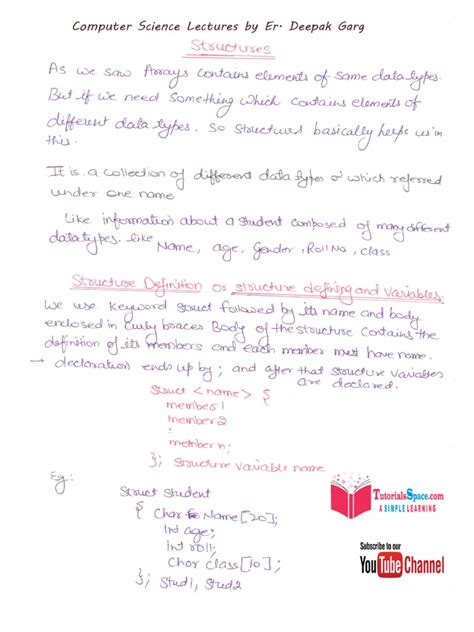 Computer Science Lectures by Er. Deepak Garg
Structures
As we saw Arrays contains elements of same data types.
But if we need something which contains elements of
different data types. So structures basically helps us in
this.
It is a collection of different data types & which referred
under one name
Like information about a student composed of many different
datatypes. like Name, age, Gender, Roll No, class
Structure Definition or structure defining and Variables.
We use keyword struct followed by its name and body
enclosed in curly braces Body of the structure contains the
definition of its members and each member must have name.
→ declaration ends up by ; and after that structure variables
are declared.
Struct <name> {
member 1
member 2
:
member n;
}; structure variable name
Eg:
Struct Student
{ Char Name[20];
int age;
int roll;
Char class[10];
}; Stud1, Stud2
TutorialsSpace.com
A SIMPLE LEARNING
Subscribe to our
YouTube Channel